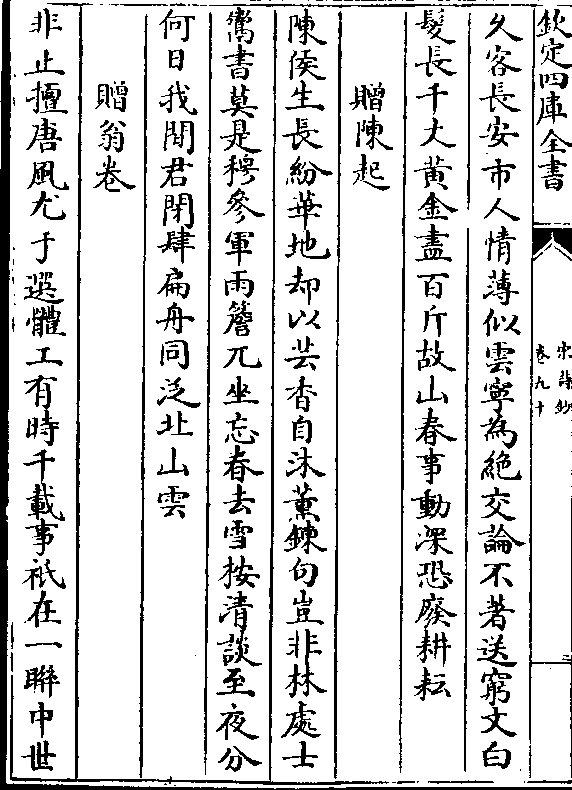 欽定四庫全書
宋詩鈔
卷九十
久客長安市人情薄似雲寧為絶交論不著送窮文白
髮長千丈黃金盡百斤故山春事動深恐廢耕耘
贈陳起
陳侯生長紛華地却以芸香自沐薫鍊句豈非林處士
鬻書莫是穆參軍雨簷兀坐忘春去雪按清談至夜分
何日我閒君閉肆扁舟同泛北山雲
贈翁卷
非止擅唐風尤于選體工有時千載事祇在一聯中世